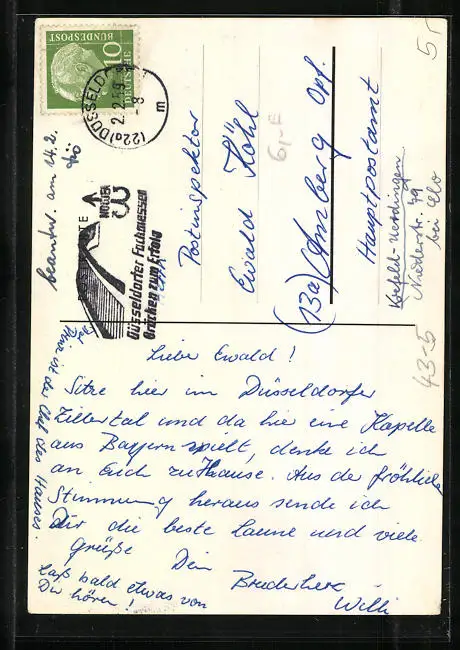 DEUTSCHE
BUNDESPOST
10
(22a) DÜSSELDORF
-8
m
Düsseldorfer Fachmessen
Brücken zum Erfolg
beantw. am 14.2.
Kö
Postinspektor
Ewald Köhl
(13a) Amberg Opf.
Hauptpostamt
Krefeld-Uerdingen
Niederstr. 49
bei
5,-
6,-
43-5
Liebe Ewald!
Sitze hier im Düsseldorfer
Zillertal und da hier eine Kapelle
aus Bayern spielt, denke ich
an Euch zu Hause. Aus der fröhlichen
Stimmung heraus sende ich
Dir die beste Laune und viele
Grüße Dein
Bruderherz
Willi
Laß bald etwas von
Dir hören!
ist der Chef des Hauses.